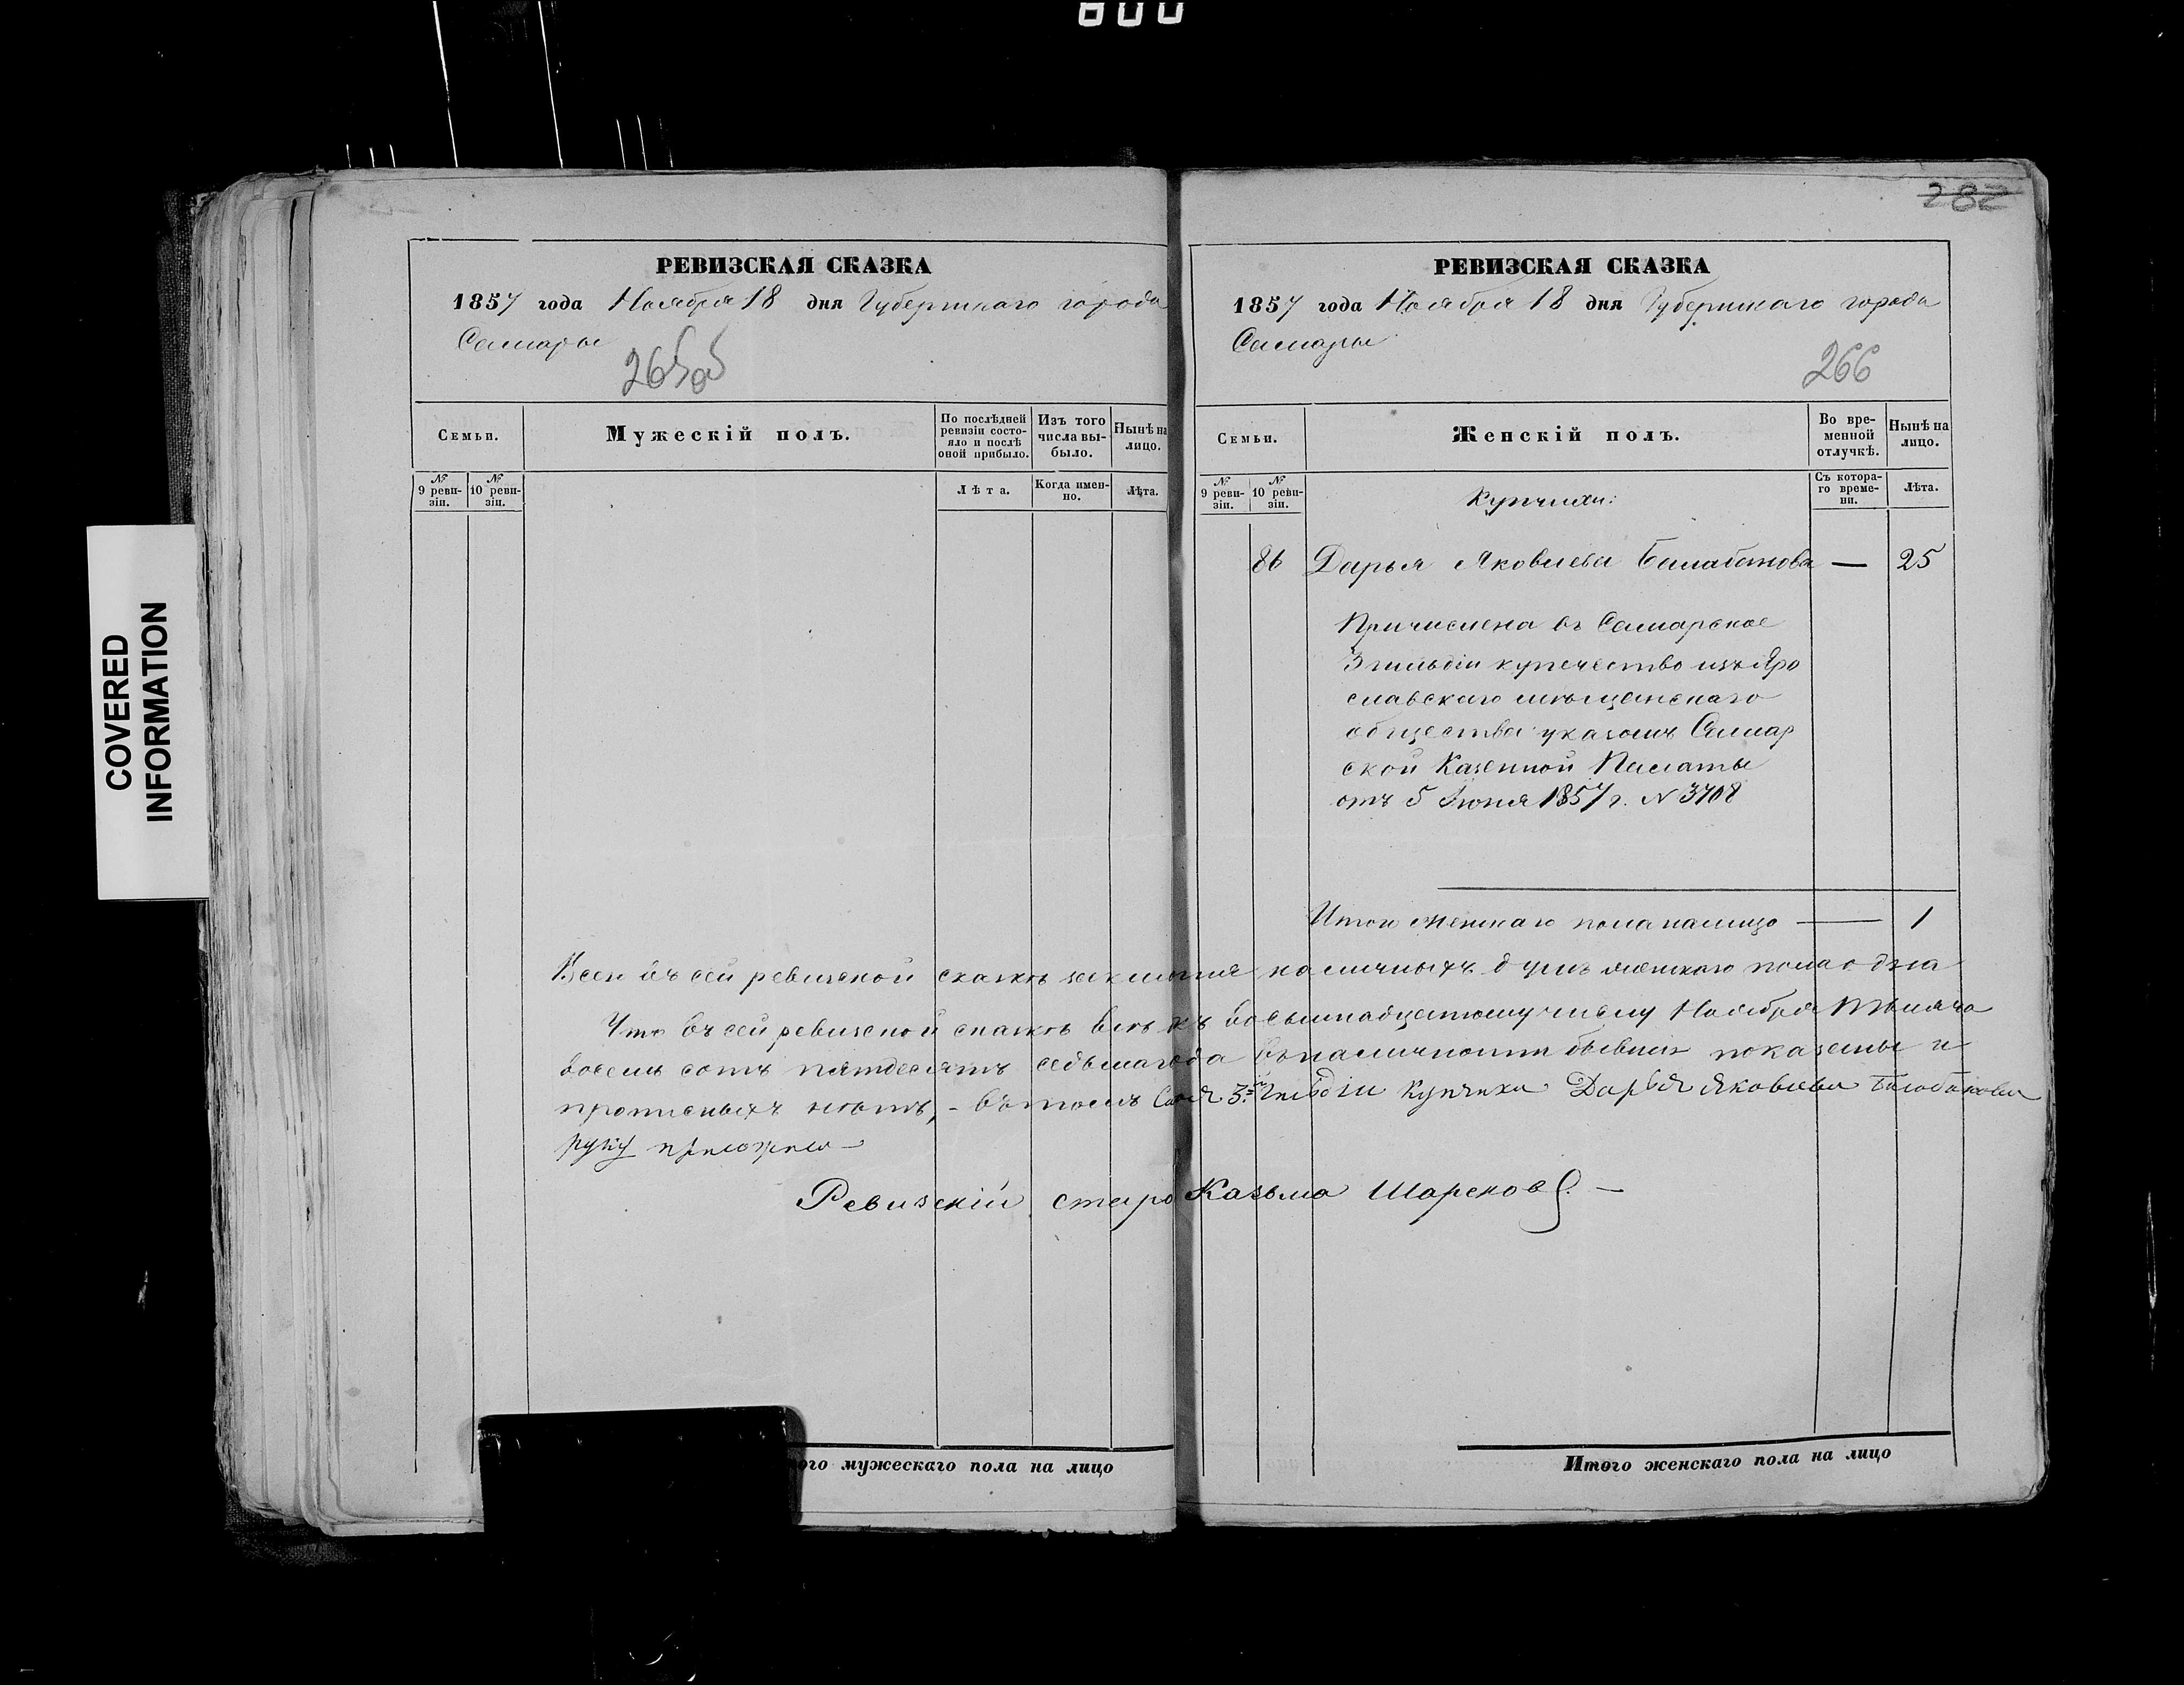 600
COVERED
INFORMATION
РЕВИЗСКАЯ СКАЗКА
1857 года Ноября 18 дня Губернскаго города
Самары
265об
Семьи.
Мужескій полъ.
По послѣдней ревизіи состояло и послѣ оной прибыло.
Изъ того числа выбыло.
Нынѣ на лицо.
№ 9 ревизіи.
№ 10 ревизіи.
Лѣта.
Когда именно.
Лѣта.
282
РЕВИЗСКАЯ СКАЗКА
1857 года Ноября 18 дня Губернскаго города
Самары
266
Семьи.
Женскій полъ.
Во временной отлучкѣ.
Нынѣ на лицо.
№ 9 ревизіи.
№ 10 ревизіи.
Купчихи:
Съ котораго времени.
Лѣта.
86 Дарья Яковлева Балабанова — 25
Причислена въ Самарское
3 гильдіи купечество изъ Яро
славскаго мѣщанскаго
общества указомъ Самар
ской Казенной Палаты
отъ 5 Іюня 1857 г. N 3708
Итого женскаго пола налицо — 1
Всего въ сей ревизской сказкѣ наличныхъ душъ женскаго пола одна
Что въ сей ревизской сказкѣ всѣ къ восемнадцатому числу Ноября Тысяча
восемь сотъ пятдесятъ седьмаго года въ наличности бывшіе показаны и
прописныхъ нѣтъ, - въ томъ 3.й гильдіи купчиха Дарья Яковлева Балабанова
руку приложила —
Ревизскій старо Казьма Шареновъ. —
ого мужескаго пола на лицо
Итого женскаго пола на лицо